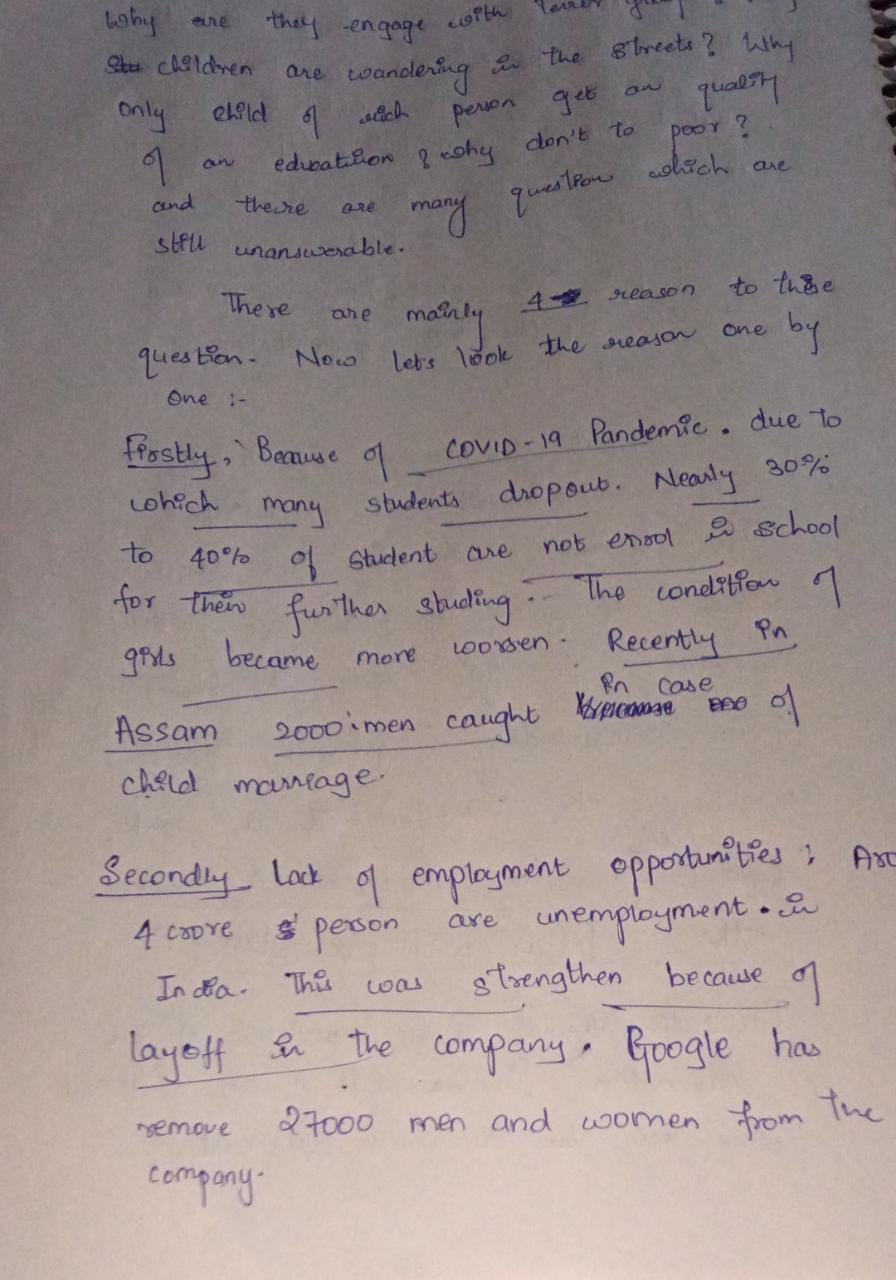 Why are they engage with
children are wandering in the streets? Why
only child of rich person get an quality
of an education ? why don't to poor?
and there are many question which are
still unanswerable.
There are mainly 4 reason to these
question. Now let's look the reason one by
one :-
Firstly, Because of COVID-19 Pandemic. due to
which many students dropout. Nearly 30%
to 40% of student are not enrol in school
for their further studing. The condition of
girls became more worsen. Recently in
Assam 2000 men caught in case of
child marreage.
Secondly Lack of employment opportunities ;
4 crore person are unemployment. in
India. This was strengthen because of
layoff in the company. Google has
remove 27000 men and women from the
company.